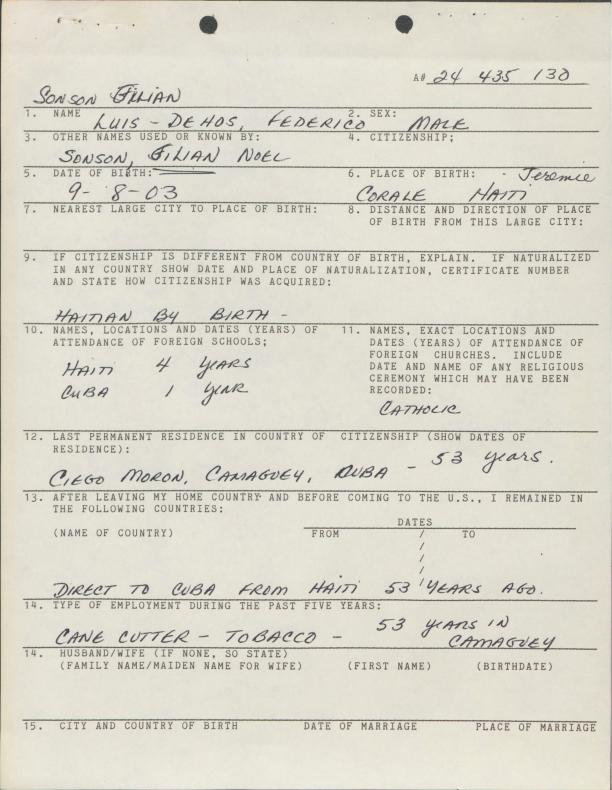 A# 24 435 130
SONSON GILIAN
1. NAME 2. SEX:
LUIS - DEHOS, FEDERICO MALE
3. OTHER NAMES USED OR KNOWN BY: 4. CITIZENSHIP;
SONSON, GILIAN NOEL
5. DATE OF BIRTH: 6. PLACE OF BIRTH: Jeremie
9- 8-03 CORALE HAITI
7. NEAREST LARGE CITY TO PLACE OF BIRTH: 8. DISTANCE AND DIRECTION OF PLACE
OF BIRTH FROM THIS LARGE CITY:
9. IF CITIZENSHIP IS DIFFERENT FROM COUNTRY OF BIRTH, EXPLAIN. IF NATURALIZED
IN ANY COUNTRY SHOW DATE AND PLACE OF NATURALIZATION, CERTIFICATE NUMBER
AND STATE HOW CITIZENSHIP WAS ACQUIRED:
HAITIAN BY BIRTH -
10. NAMES, LOCATIONS AND DATES (YEARS) OF
ATTENDANCE OF FOREIGN SCHOOLS;
HAITI 4 YEARS
CUBA 1 YEAR
11. NAMES, EXACT LOCATIONS AND
DATES (YEARS) OF ATTENDANCE OF
FOREIGN CHURCHES. INCLUDE
DATE AND NAME OF ANY RELIGIOUS
CEREMONY WHICH MAY HAVE BEEN
RECORDED:
CATHOLIC
12. LAST PERMANENT RESIDENCE IN COUNTRY OF CITIZENSHIP (SHOW DATES OF
RESIDENCE):
CIEGO MORON, CAMAGUEY, CUBA - 53 years.
13. AFTER LEAVING MY HOME COUNTRY AND BEFORE COMING TO THE U.S., I REMAINED IN
THE FOLLOWING COUNTRIES:
DATES
(NAME OF COUNTRY) FROM / TO
/
/
/
DIRECT TO CUBA FROM HAITI 53 YEARS AGO.
14. TYPE OF EMPLOYMENT DURING THE PAST FIVE YEARS:
CANE CUTTER - TOBACCO - 53 YEARS IN
CAMAGUEY
14. HUSBAND/WIFE (IF NONE, SO STATE)
(FAMILY NAME/MAIDEN NAME FOR WIFE) (FIRST NAME) (BIRTHDATE)
15. CITY AND COUNTRY OF BIRTH DATE OF MARRIAGE PLACE OF MARRIAGE